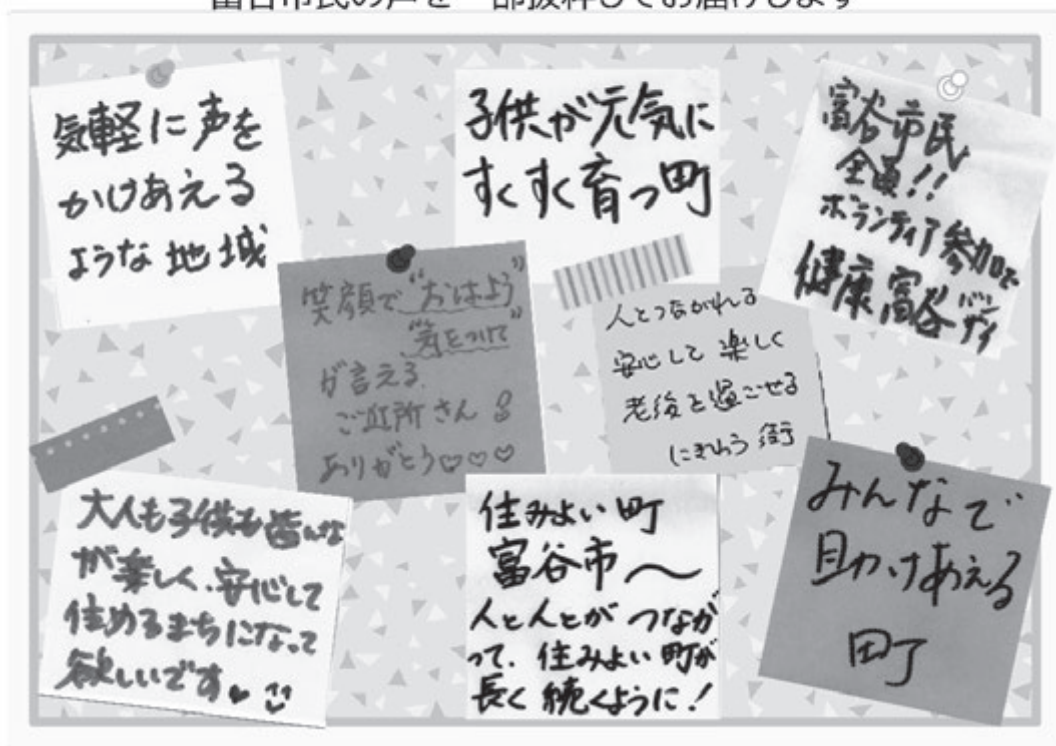 富谷市民の声を一部抜粋してお届けします
気軽に声を
かけあえる
ような地域
子供が元気に
すくすく育つ町
富谷市民
全員!!
ボランティア参加で
健康富谷バンザイ
笑顔で“おはよう”
“気をつけて”
が言える
ご近所さん
ありがとう♡♡♡
人とつながれる
安心して楽しく
老後を過ごせる
にぎわう街
大人も子供も皆んな
が楽しく、安心して
住めるまちになって
欲しいです♥
住みよい町
富谷市〜
人と人とがつなが
って、住みよい町が
長く続くように!
みんなで
助けあえる
町